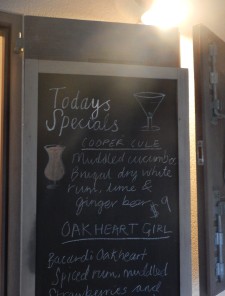 Todays
Specials
COOPER CULE
Muddled cucumber
Brugal dry white
rum, lime &
ginger beer $9
OAKHEART GIRL
Bacardi Oakheart
Spiced rum, muddled
Strawberries and